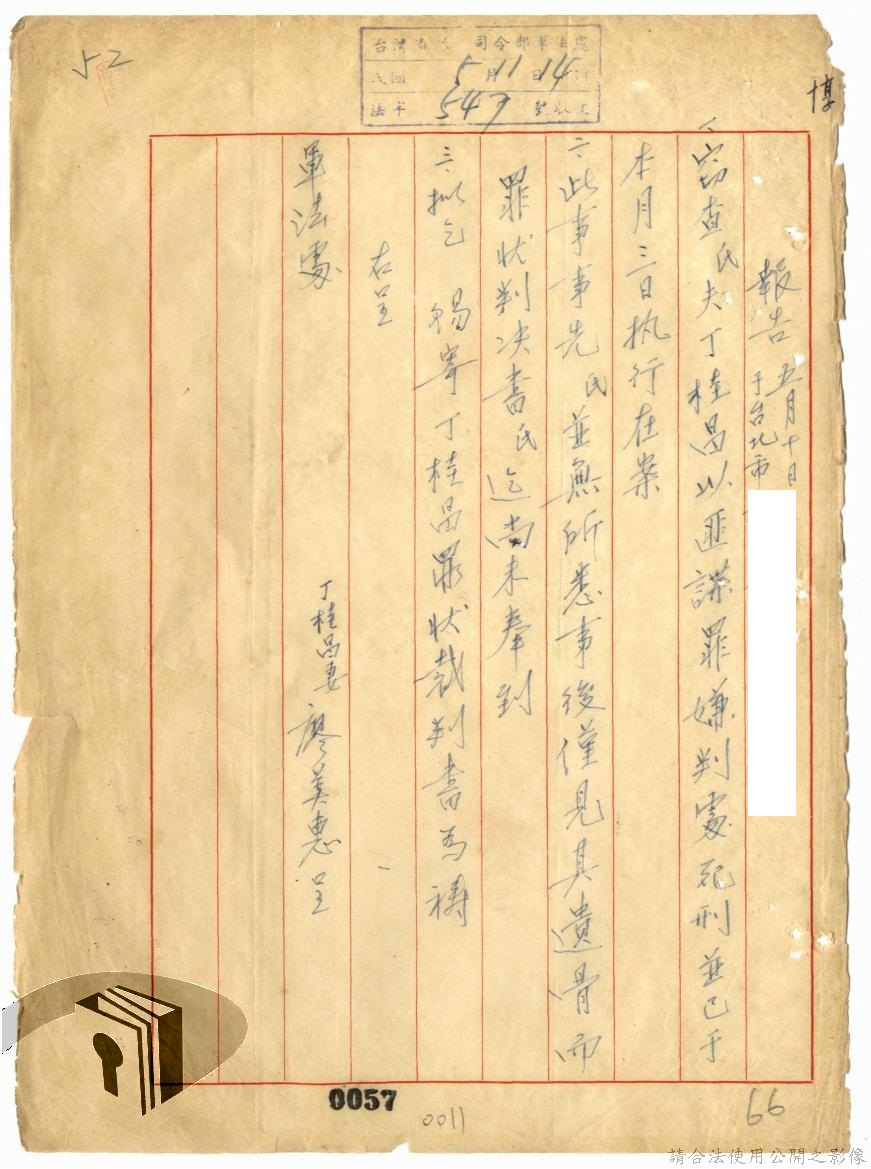 52
司令部軍法處
5月11日14
法字 547 號收文
惇
報告 五月十日
于台北市
一、竊查氏夫丁桂昌以匪諜罪嫌判處死刑並已于
本月三日执行在案
二、此事事先氏並無所悉事後僅見其遺骨而
罪状判决書氏迄尚未奉到
三、擬乞 賜寄丁桂昌罪状裁判書為禱
右呈
軍法處
丁桂昌妻 廖美惠 呈
0057
0011
66
請合法使用公開之影像